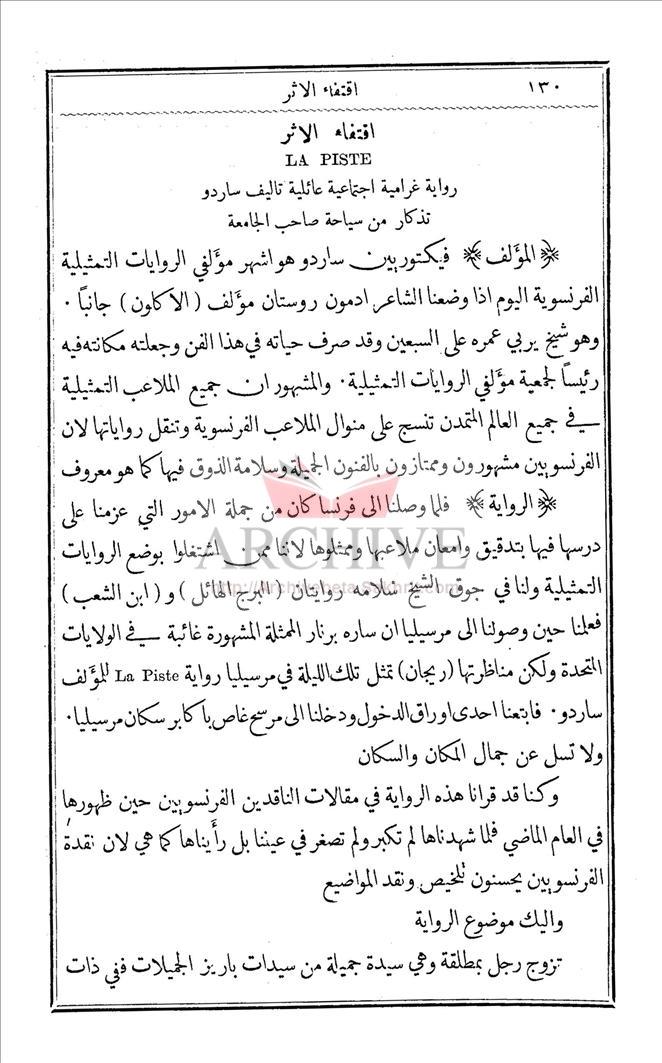 ١٣٠ اقتفاء الاثر
اقتفاء الاثر
LA PISTE
رواية غرامية اجتماعية عائلية تاليف ساردو
تذكار من سياحة صاحب الجامعة
﴿ المؤلف ﴾ فيكتوريين ساردو هو اشهر مؤلفي الروايات التمثيلية
الفرنسوية اليوم اذا وضعنا الشاعر ادمون روستان مؤلف ( الاكلون ) جانباً ٠
وهو شيخ يربي عمره على السبعين وقد صرف حياته في هذا الفن وجعلته مكانته فيه
رئيساً لجمعية مؤلفي الروايات التمثيلية ٠ والمشهور ان جميع الملاعب التمثيلية
في جميع العالم المتمدن تنسج على منوال الملاعب الفرنسوية وتنقل رواياتها لان
الفرنسويين مشهورون وممتازون بالفنون الجميلة وسلامة الذوق فيها كما هو معروف
﴿ الرواية ﴾ فلما وصلنا الى فرنسا كان من جملة الامور التي عزمنا على
درسها فيها بتدقيق وامعان ملاعبها وممثلوها لاننا ممن اشتغلوا بوضع الروايات
التمثيلية ولنا في جوق الشيخ سلامه روايتان ( البرج الهائل ) و ( ابن الشعب )
فعلمنا حين وصولنا الى مرسيليا ان ساره برنار الممثلة المشهورة غائبة في الولايات
المتحدة ولكن مناظرتها ( ريجان ) تمثل تلك الليلة في مرسيليا رواية La Piste للمؤلف
ساردو ٠ فابتعنا احدى اوراق الدخول ودخلنا الى مرسح غاص باكابر سكان مرسيليا ٠
ولا تسل عن جمال المكان والسكان
وكنا قد قرانا هذه الرواية في مقالات الناقدين الفرنسويين حين ظهورها
في العام الماضي فلما شهدناها لم تكبر ولم تصغر في عيننا بل رأيناها كما هي لان نقدة
الفرنسويين يحسنون تلخيص ونقد المواضيع
واليك موضوع الرواية
تزوج رجل بمطلقة وهي سيدة جميلة من سيدات باريز الجميلات ففي ذات
ARCHIVE
http://Archivebeta.Sakhrit.com